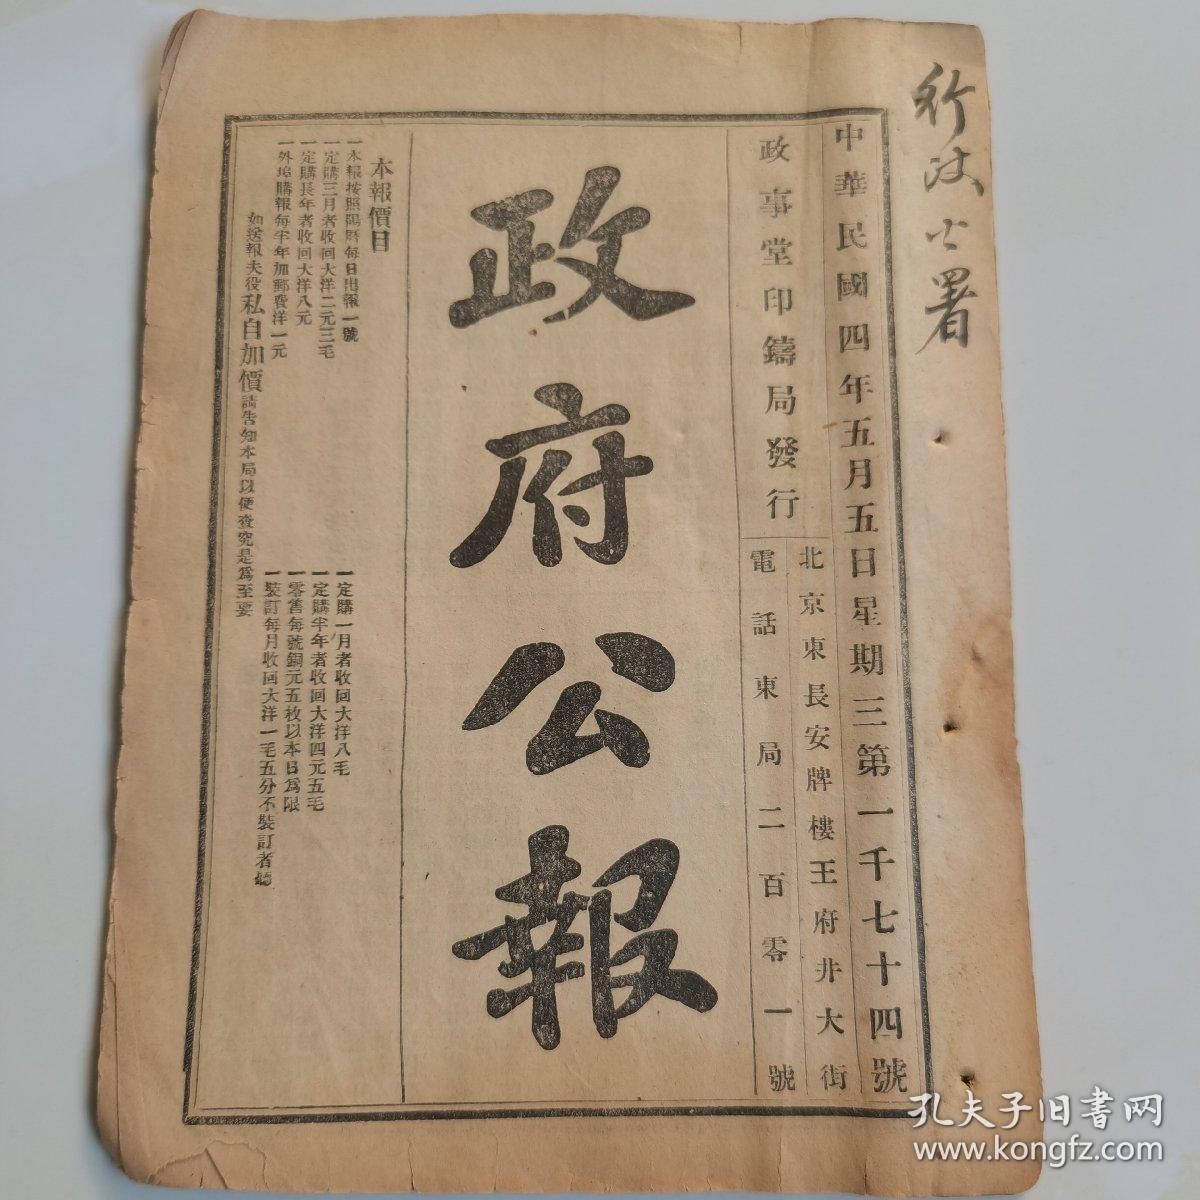 行政公署
中華民國四年五月五日星期三第一千七十四號
政事堂印鑄局發行
北京東長安牌樓王府井大街
電話東局二百零一號
政府公報
本報價目
一本報按照陽曆每日出報一號
一定購三月者收回大洋二元三毛
一定購長年者收回大洋八元
一外埠購報每半年加郵費洋一元
如送報夫役私自加價請告知本局以便查究是爲至要
一定購一月者收回大洋八毛
一定購半年者收回大洋四元五毛
一零售每號銅元五枚以本日爲限
一裝訂每月收回大洋一毛五分不裝訂者聽
孔夫子旧书网
www.kongfz.com